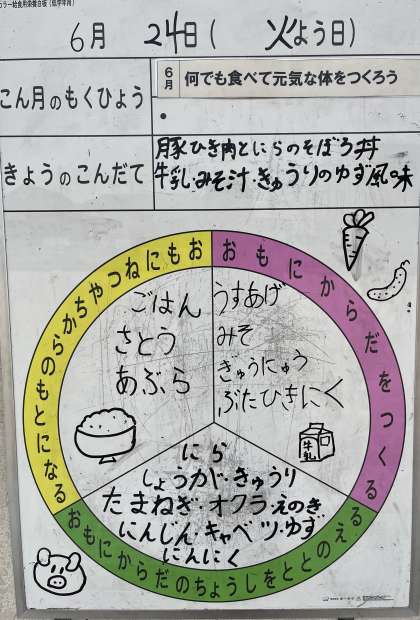 カラー給食用栄養白板(低学年用)
6月 24日( 火よう日)
こん月のもくひょう
6月 何でも食べて元気な体をつくろう
きょうのこんだて
豚ひき肉とにらのそぼろ丼
牛乳・みそ汁・きゅうりのゆず風味
おもにねつやちからのもとになる
ごはん
さとう
あぶら
おもにからだをつくる
うすあげ
みそ
ぎゅうにゅう
ぶたひきにく
牛乳
にら
しょうが・きゅうり
たまねぎ・オクラ・えのき
にんじん・キャベツ・ゆず
にんにく
おもにからだのちょうしをととのえる